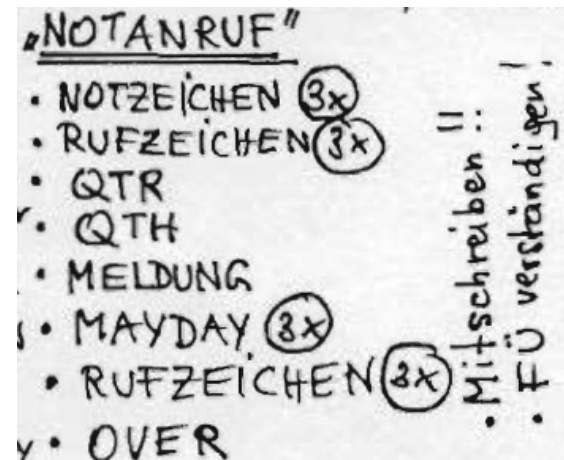 „NOTANRUF"
· NOTZEICHEN 3x
· RUFZEICHEN 3x
· QTR
· QTH
· MELDUNG
· MAYDAY 3x
· RUFZEICHEN 3x
· OVER
· Mitschreiben !!
· FÜ verständigen!